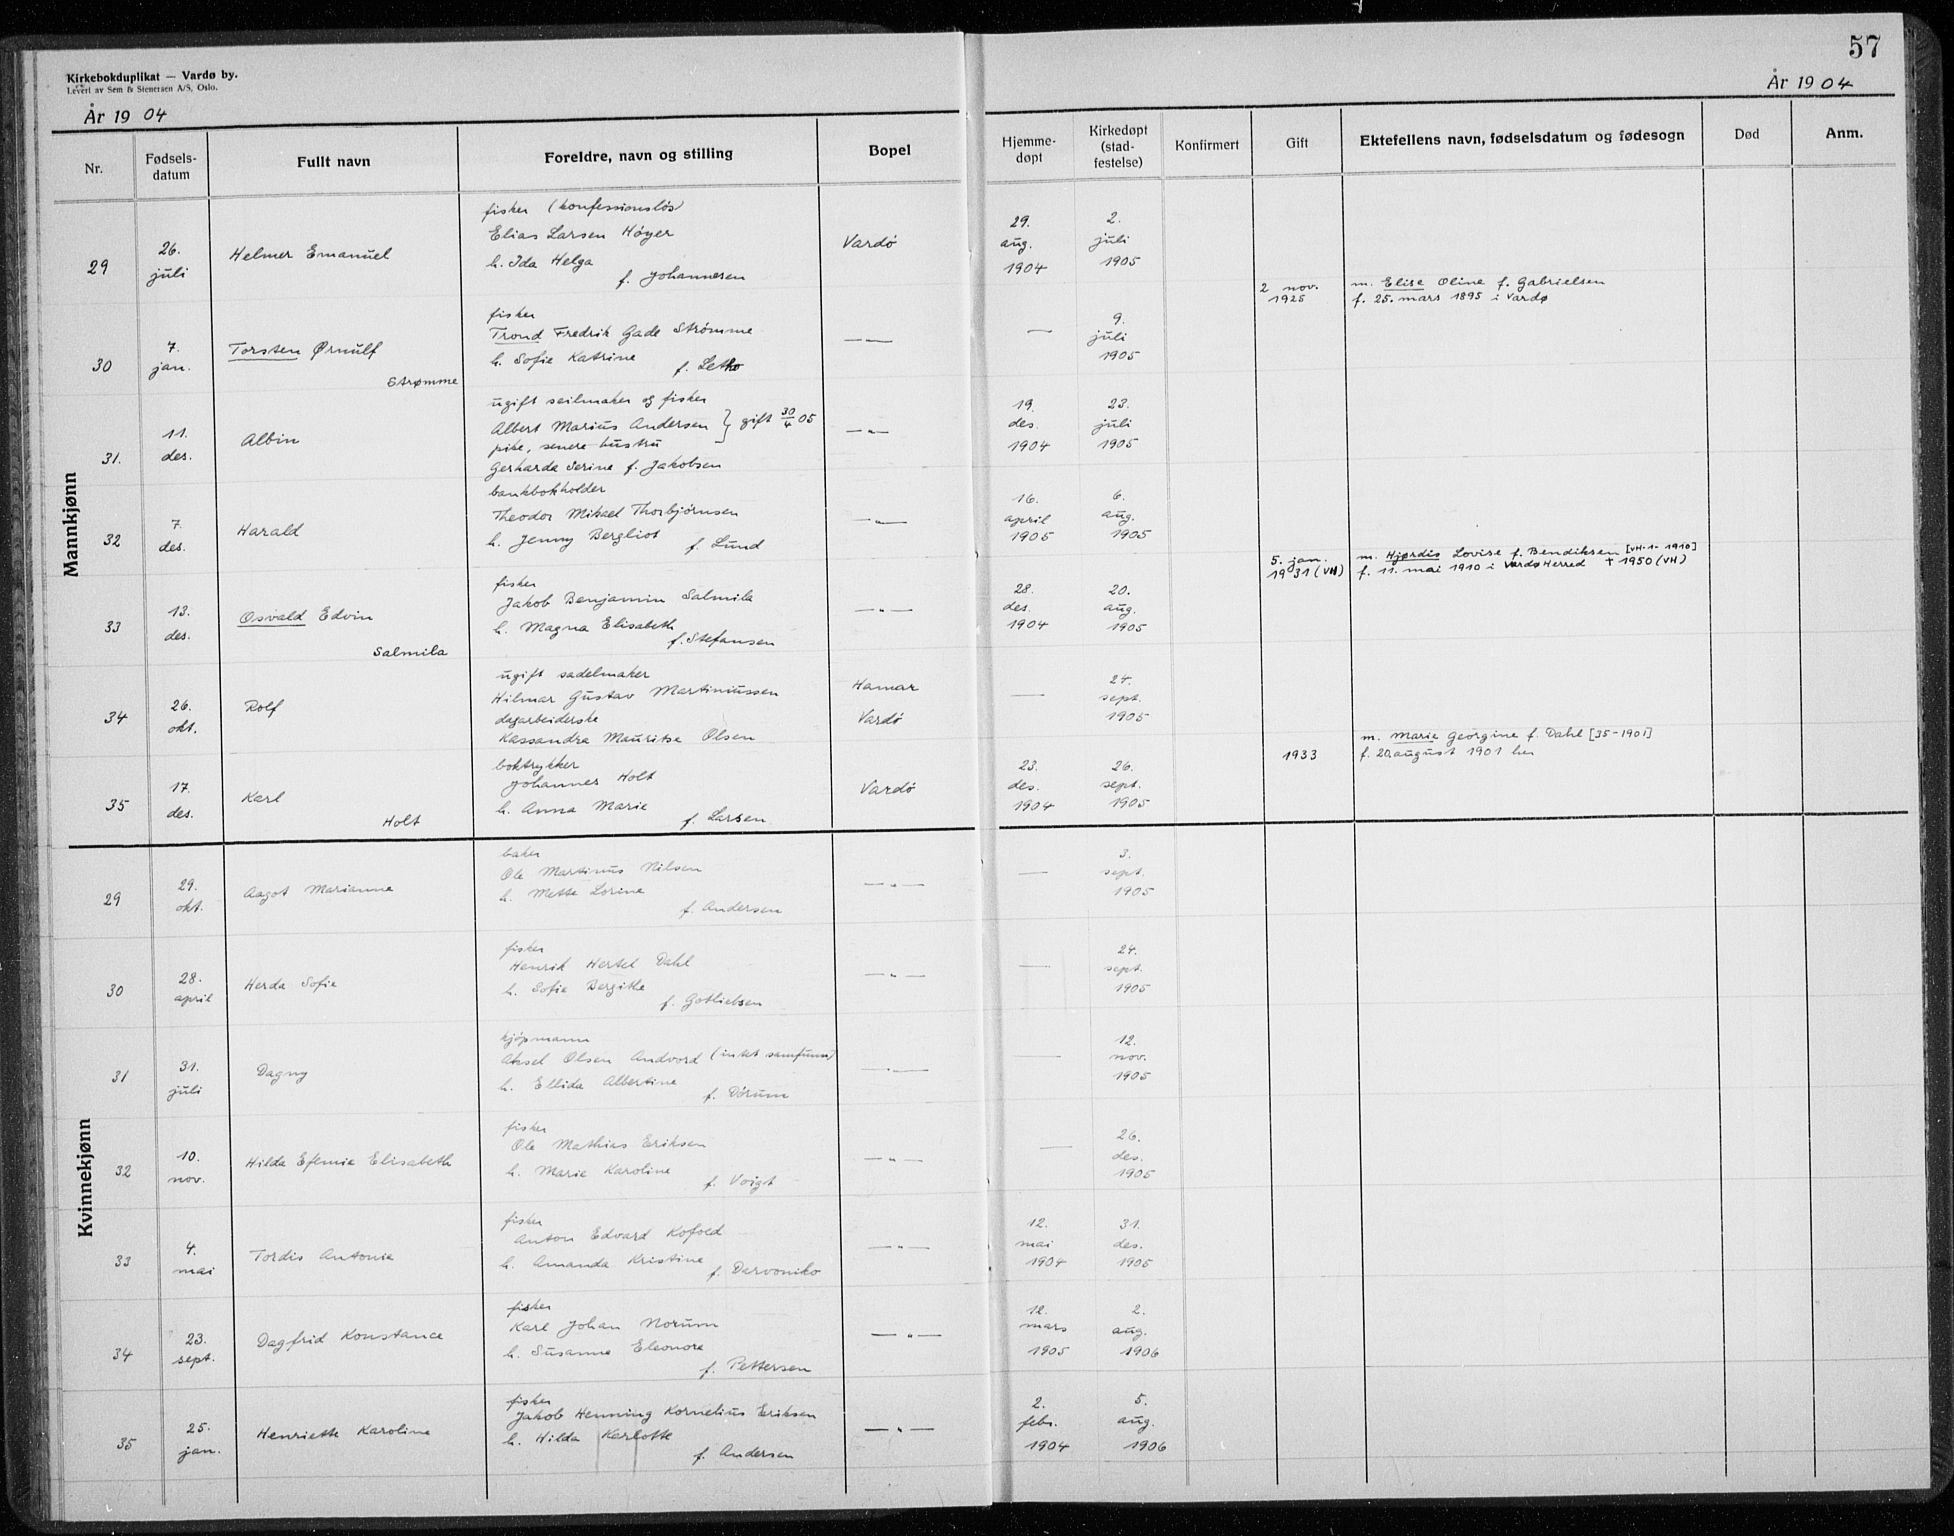 57
Kirkebokduplikat — Vardø by.
Levert av Sem & Stenersen A/S, Oslo.
År 1904
År 1904
Nr. Fødselsdatum Fullt navn Foreldre, navn og stilling Bopel Hjemmedøpt Kirkedøpt (stadfestelse) Konfirmert Gift Ektefellens navn, fødselsdatum og fødesogn Død Anm.
Mannkjønn
29 26. juli Helmer Emanuel
fisker (konfessionsløs)
Elias Larsen Høyer
h. Ida Helga
f. Johannesen
Vardö
29. aug. 1904
2. juli 1905
30 7. jan. Torsten Ørnulf
Strømme
fisker
Trond Fredrik Gade Strömme
h. Sofie Katrine
f. Letho
— " —
—
9. juli 1905
2 nov. 1925
m. Elise Oline f. Gabrielsen
f. 25. mars 1895 i Vardø
31. 11. des. Albin
ugift seilmaker og fisker
Albert Marius Andersen } gift 30/4 05
pike, senere hustru
Gerharda Serine f. Jakobsen
— " —
19. des. 1904
23. juli 1905
32 7. des. Harald
bankbokholder
Theodor Mikael Thorbjørnsen
h. Jenny Bergliot
f. Lund
— " —
16. april 1905
6. aug. 1905
33 13. des. Osvald Edvin
Salmila
fisker
Jakob Benjamin Salmila
h. Magna Elisabeth
f. Stefansen
— " —
28. des. 1904
20. aug. 1905
5. jan. 1931 (VH)
m. Hjørdis Lovise f. Bendiksen [VH-1-1910]
f. 11. mai 1910 i Vardø Herred + 1950 (VH)
34 26. okt. Rolf
ugift sadelmaker
Hilmar Gustav Martiniussen
dagarbeiderske
Kassandra Mauritse Olsen
Hamar
Vardö
—
24. sept. 1905
35 17. des. Karl
Holt
boktrykker
Johannes Holt
h. Anna Marie
f. Larsen
Vardö
23. des. 1904
26. sept. 1905
1933
m. Marie Georgine f. Dahl [35-1901]
f. 20. august 1901 her
Kvinnekjønn
29 29. okt. Aagot Marianne
baker
Ole Martinus Nilsen
h. Mette Lorine
f. Andersen
— " —
—
3. sept. 1905
30 28. april Herda Sofie
fisker
Henrik Hertel Dahl
h. Sofie Bergithe
f. Gotliebsen
— " —
—
24. sept. 1905
31 31. juli Dagny
kjøpmann
Aksel Olsen Andvord (intet samfunn)
h. Ellida Albertine
f. Dörum
— " —
—
12. nov. 1905
32 10. nov. Hilda Efemie Elisabeth
fisker
Ole Mathias Eriksen
h. Marie Karoline
f. Voigt
— " —
—
26. des. 1905
33 4. mai Tordis Antonie
fisker
Anton Edvard Kofold
h. Amanda Kristine
f. Darvoniko
— " —
12. mai 1904
31. des. 1905
34 23. sept. Dagfrid Konstance
fisker
Karl Johan Norum
h. Susanne Eleonore
f. Pettersen
— " —
12. mars 1905
2. aug. 1906
35 25. jan. Henriette Karoline
fisker
Jakob Henning Kornelius Eriksen
h. Hilda Karlotte
f. Andersen
— " —
2. febr. 1904
5. aug. 1906